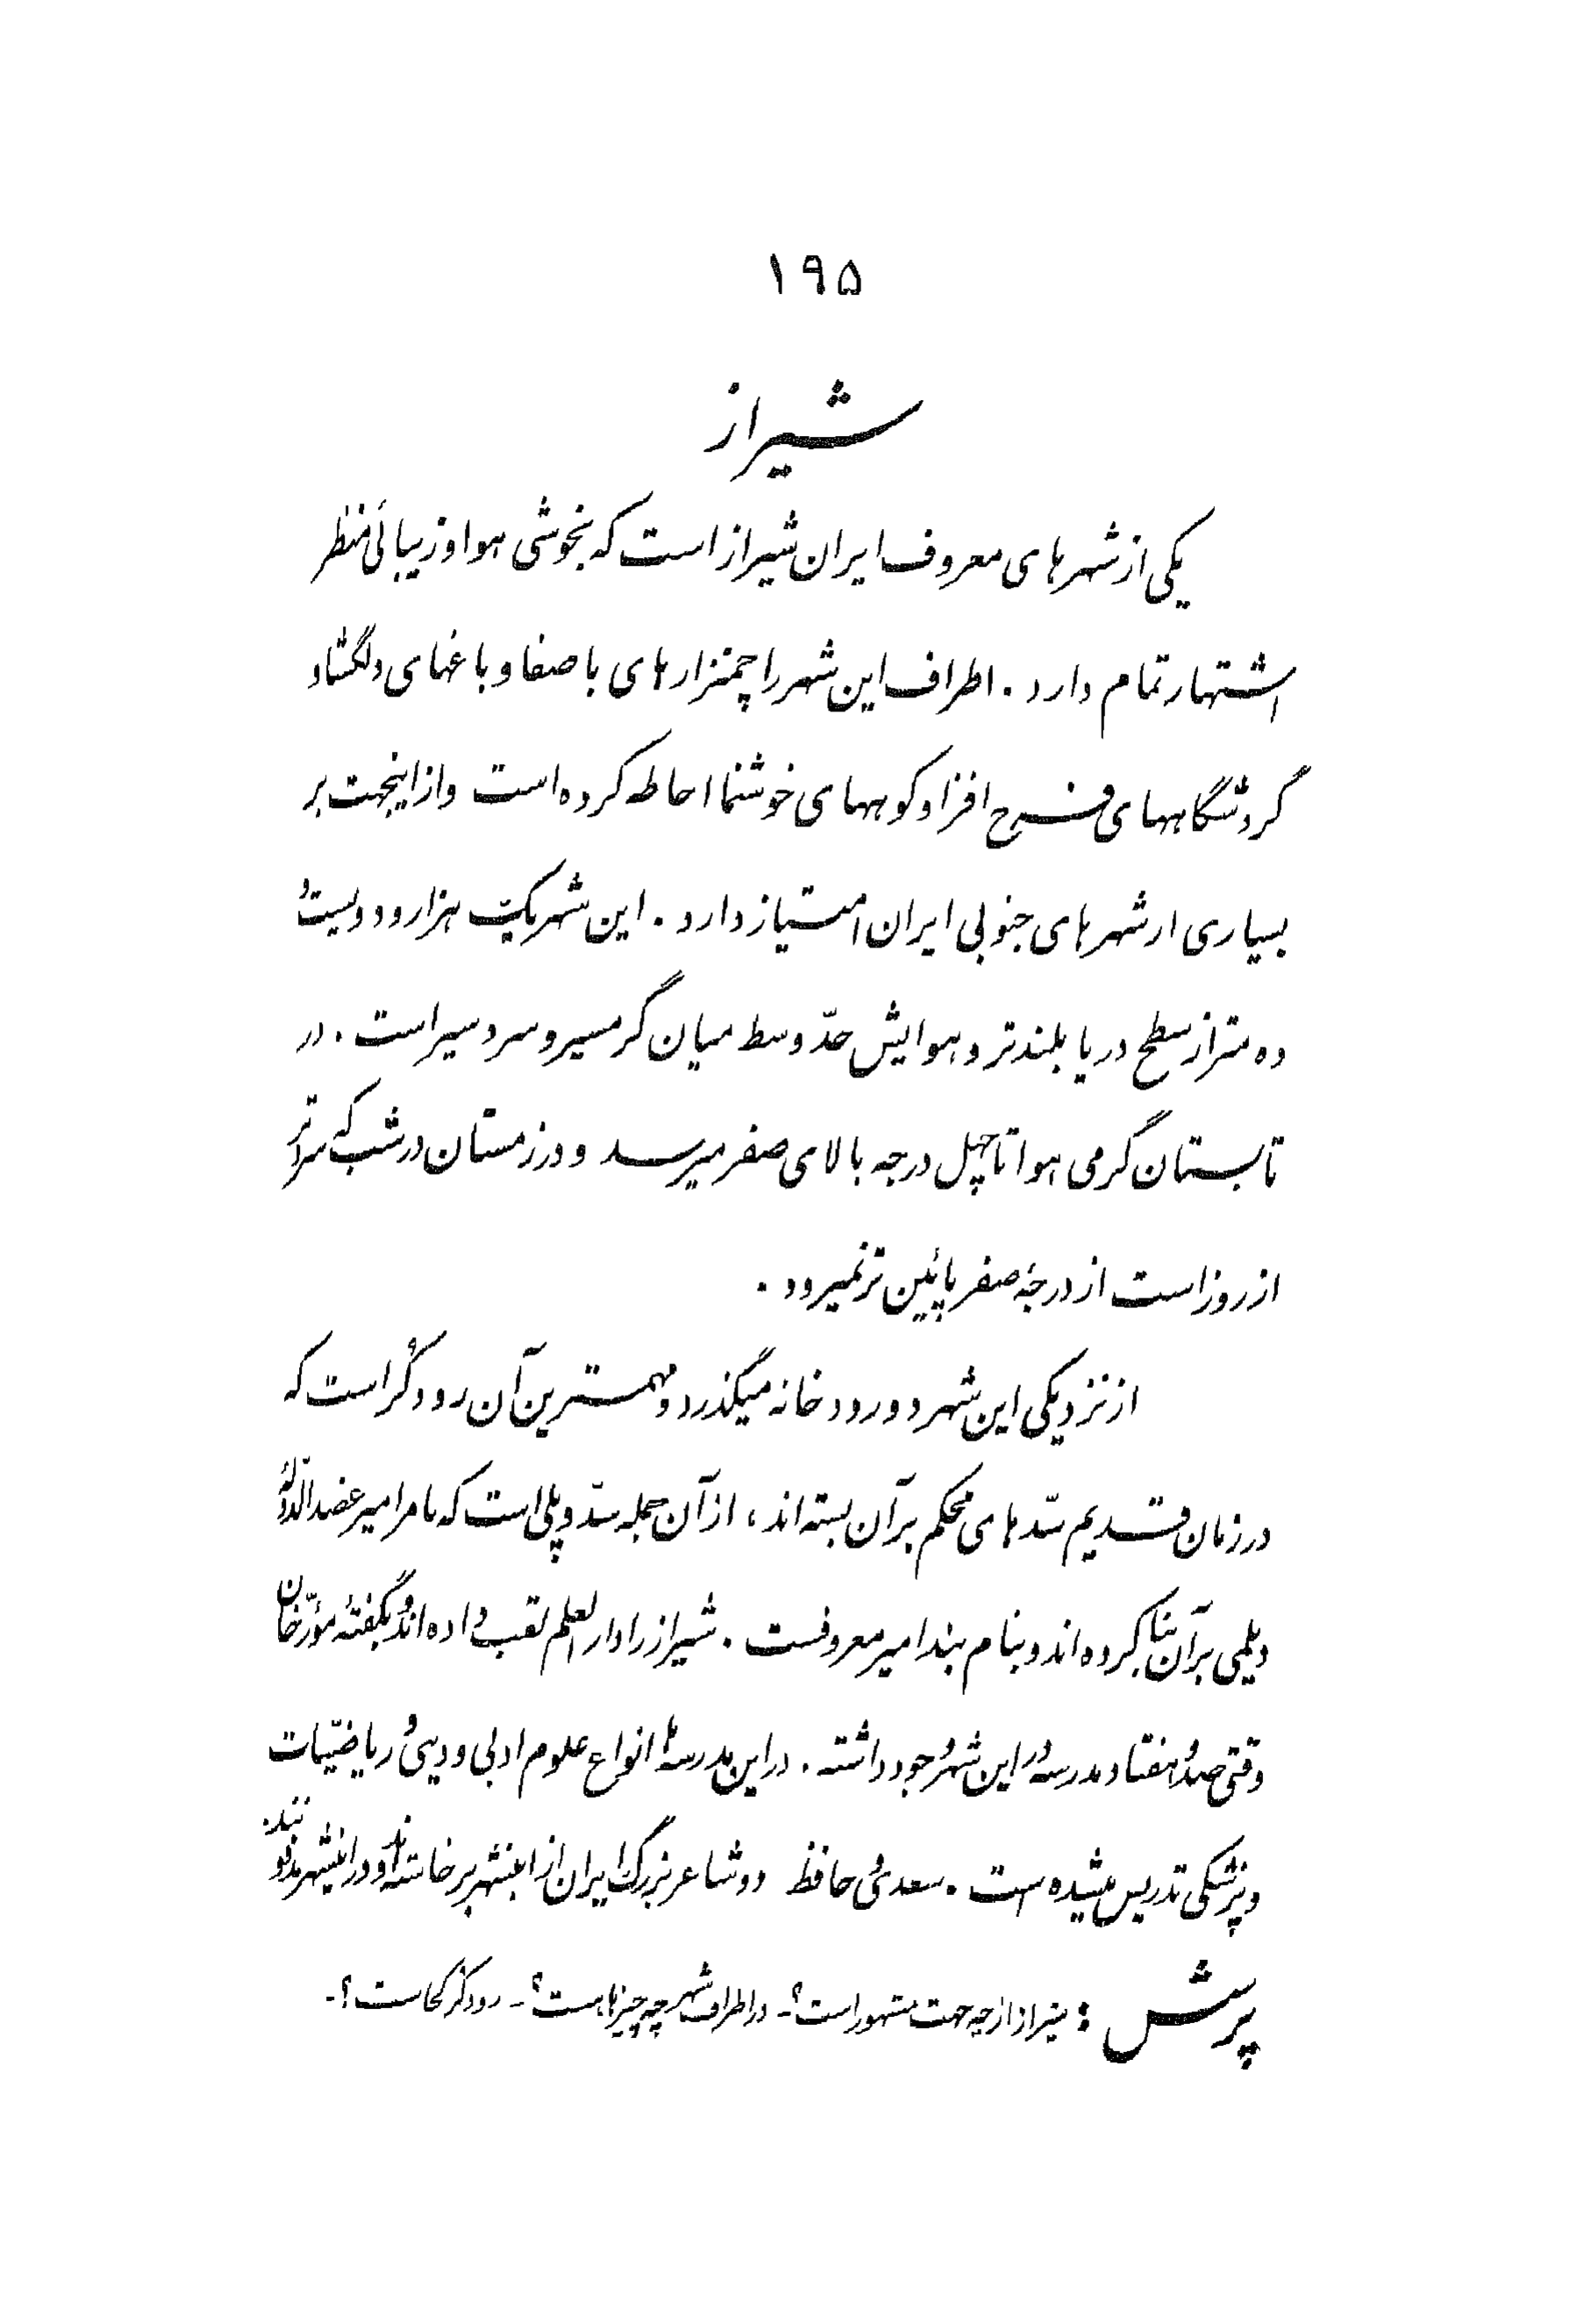 ۱۹۵
شیراز
یکی از شهرهای معروف ایران شیراز است که بخوشی هوا و زیبائی منظر
اشتهار تمام دارد . اطراف این شهر را چمنزارهای با صفا و باغهای دلگشا و
گردشگاههای فرح افزا و کوههای خوشنما احاطه کرده است و از اینجهت بر
بسیاری از شهرهای جنوبی ایران امتیاز دارد . این شهر یک هزار و دویست و
ده متر از سطح دریا بلندتر و هوایش حدّ وسط میان گرمسیر و سردسیر است . در
تابستان گرمی هوا تا چهل درجه بالای صفر میرسد و در زمستان در شب که سردتر
از روز است از درجهٔ صفر پائین تر نمیرود .
از نزدیکی این شهر دو رودخانه میگذرد و مهمترین آن رود کُر است که
در زمان قدیم سدّهای محکم بر آن بسته‌اند ، از آن جمله سدّ و پلی است که بامر امیر عضدالدّولهٔ
دیلمی بر آن بنا کرده‌اند و بنام بند امیر معروفست . شیراز را دارالعلم لقب داده‌اند و بگفتهٔ مورّخان
وقتی صد و هفتاد مدرسه در این شهر وجود داشته . در این مدرسه‌ها انواع علوم ادبی و دینی و ریاضیّات
و پزشکی تدریس میشده است . سعدی و حافظ دو شاعر بزرگ ایران از اینشهر برخاسته‌اند و در اینشهر مدفونند .
پرسش : شیراز از چه جهت مشهور است ؟ - در اطراف شهر چه چیزها هست ؟ - رود کُر کجاست ؟ -